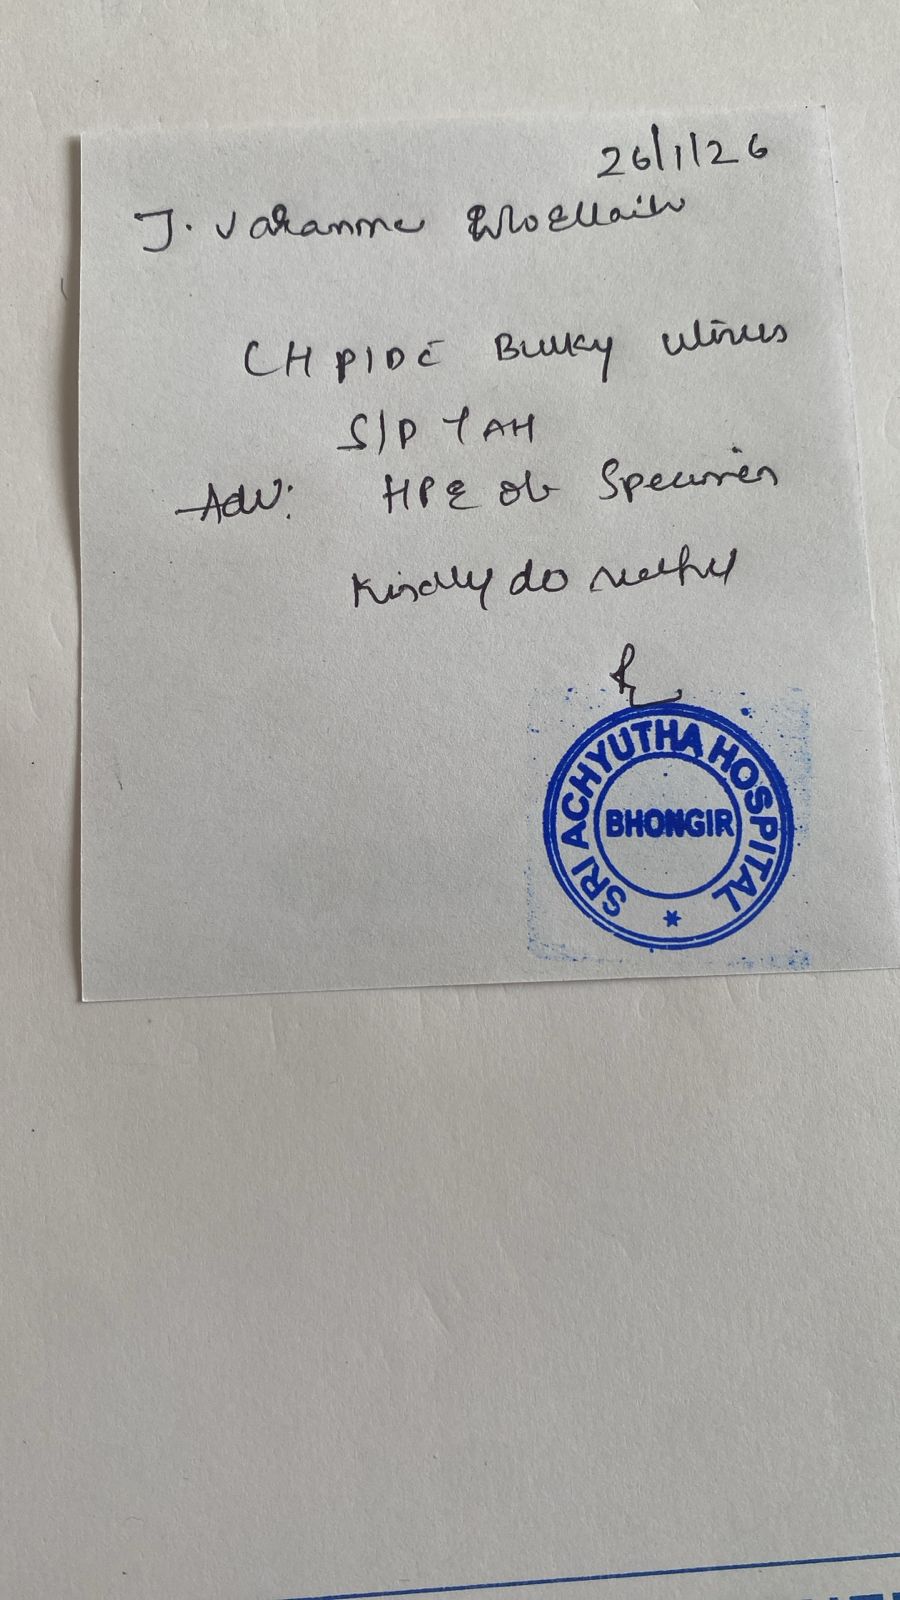 26/1/26
J. Varamme
CH PID C Bulky uterus
S/P TAH
Adv: HPE of Specimen
Kindly do needful
SRI ACHYUTHA HOSPITAL
BHONGIR